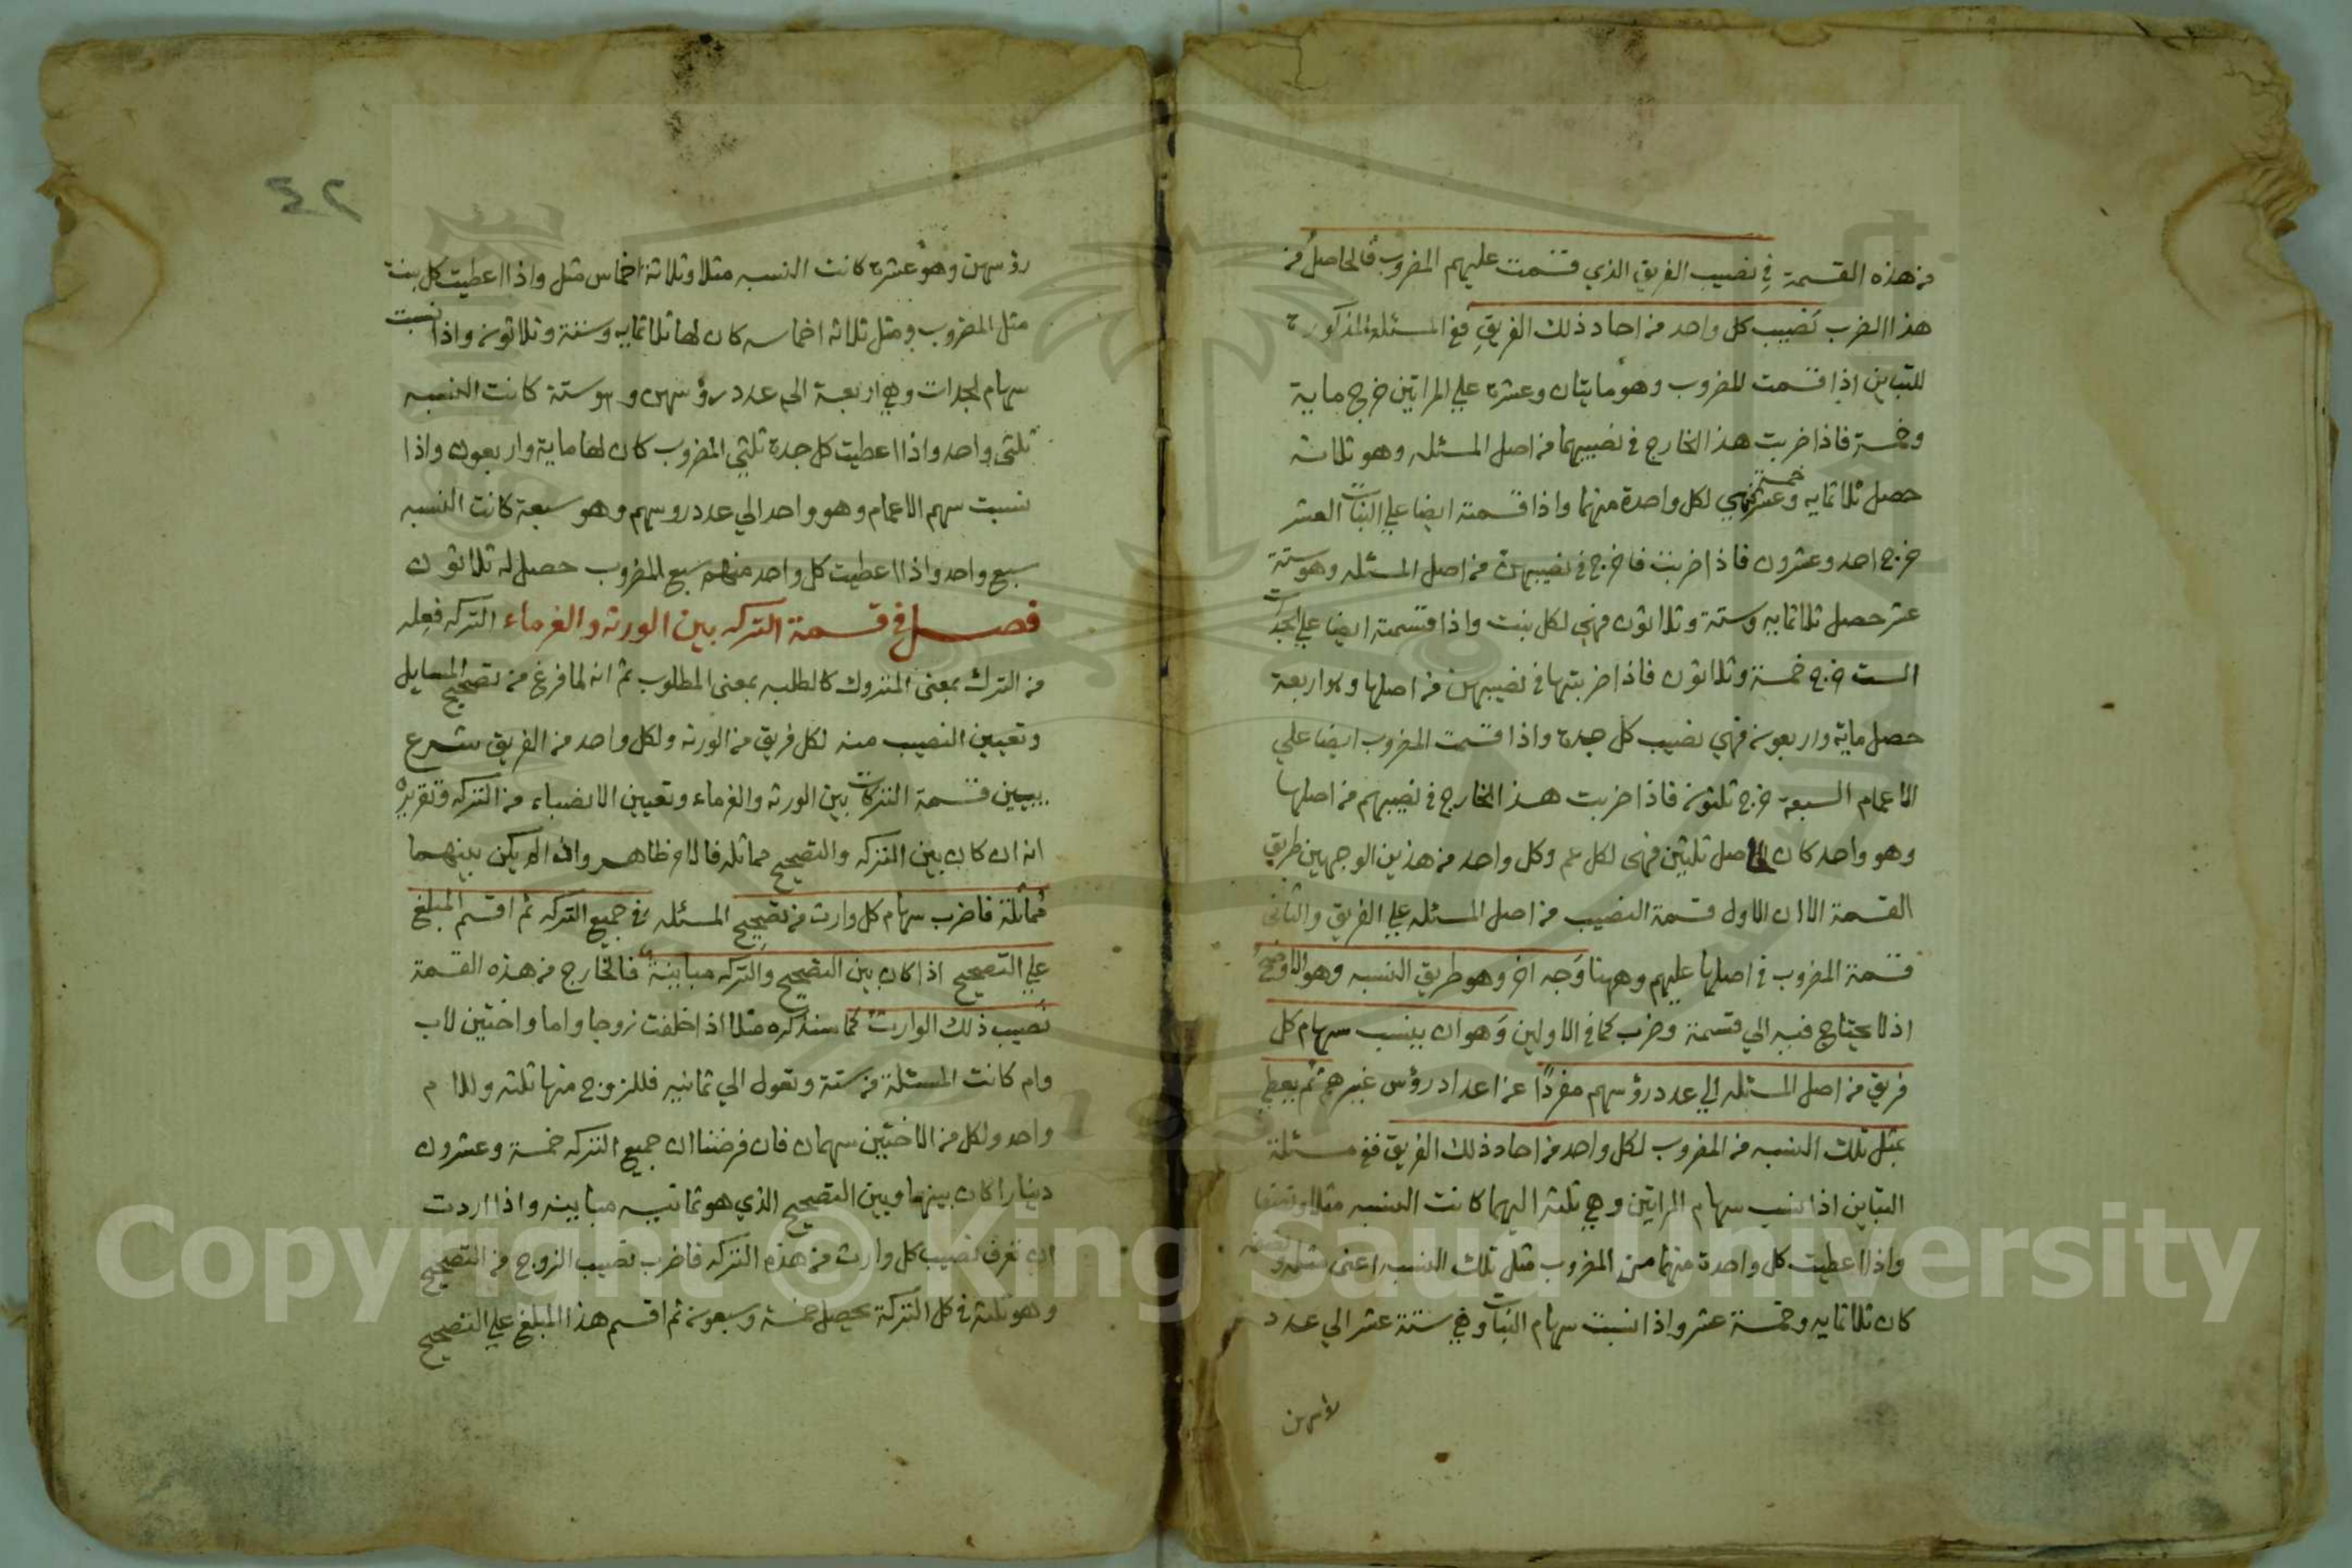 من هذه القسمة في نصيب الفريق الذي قسمت عليهم المضروب فالحاصل من
هذا الضرب نصيب كل واحد من احاد ذلك الفريق ففي المسئلة المذكورة
للتباين اذا قسمت المضروب وهو مايتان وعشرة علي المراتين خرج ماية
وخمسة فاذا ضربت هذا الخارج في نصيبهما من اصل المسئله وهو ثلاثة
حصل ثلاثمايه وخمسة عشر فهي لكل واحدة منهما واذا قسمته ايضا علي البنات العشر
خرج احد وعشرون فاذا ضربت ما خرج في نصيبهن من اصل المسئله وهو ستة
عشر حصل ثلاثمايه وستة وثلاثون فهي لكل بنت واذا قسمته ايضا علي الجدات
الست خرج خمسة وثلاثون فاذا ضربتها في نصيبهن من اصلها وهو اربعة
حصل ماية واربعون فهي نصيب كل جدة واذا قسمت المضروب ايضا علي
الاعمام السبعة خرج ثلثون فاذا ضربت هذا الخارج في نصيبهم من اصلها
وهو واحد كان الحاصل ثلثين فهى لكل عم وكل واحد من هذين الوجهين طريق
القسمة الا ان الاول قسمة النصيب من اصل المسئله علي الفريق والثانى
قسمة المضروب في اصلها عليهم وههنا وجه اخر وهو طريق النسبه وهو الاوضح
اذ لا يحتاج فيه الي قسمة وضرب كما في الاولين وهو ان ينسب سهام كل
فريق من اصل المسئله الي عدد رؤسهم مفردا عن اعداد رؤس غيرهم ثم يعطي
بمثل تلك النسبه من المضروب لكل واحد من احاد ذلك الفريق ففي مسئلة
التباين اذا نسب سهام المراتين وهي ثلثه اليهما كانت النسبه مثلا ونصفا
واذا اعطيت كل واحدة منهما من المضروب مثل تلك النسبه اعنى مثله ونصفه
كان ثلاثمايه وخمسة عشر واذا نسبت سهام البنات وهي ستة عشر الي عدد
رؤسهن
٤٢
رؤسهن وهو عشرة كانت النسبه مثلا وثلاثة اخماس مثل واذا اعطيت كل بنت
مثل المضروب ومثل ثلاثه اخماسه كان لها ثلاثمايه وستة وثلاثون واذا نسبت
سهام الجدات وهي اربعة الي عدد رؤسهن وهو ستة كانت النسبه
ثلثى واحد واذا اعطيت كل جدة ثلثي المضروب كان لها ماية واربعون واذا
نسبت سهم الاعمام وهو واحد الي عدد روسهم وهو سبعة كانت النسبه
سبع واحد واذا اعطيت كل واحد منهم سبع المضروب حصل له ثلاثون
فصل في قسمة التركه بين الورثه والغرماء التركه فعله
من الترك بمعنى المتروك كالطلبه بمعنى المطلوب ثم انه لما فرغ من تصحيح المسايل
وتعيين النصيب منه لكل فريق من الورثه ولكل واحد من الفريق شرع
يبين قسمة التركات بين الورثه والغرماء وتعيين الانصباء من التركه وتقريره
انه ان كان بين التركه والتصحيح مماثله فالامر ظاهر واذا لم يكن بينهما
مماثلة فاضرب سهام كل وارث من تصحيح المسئله في جميع التركه ثم اقسم المبلغ
علي التصحيح اذا كان بين التصحيح والتركه مباينة فالخارج من هذه القسمة
نصيب ذلك الوارث كما سنذكره مثلا اذا خلفت زوجا واما واختين لاب
وام كانت المسئلة من ستة وتعول الي ثمانيه فللزوج منها ثلثه وللام
واحد ولكل من الاختين سهمان فان فرضنا ان جميع التركه خمسة وعشرون
دينارا كان بينها وبين التصحيح الذي هو ثمانيه مباينه واذا اردت
ان تعرف نصيب كل وارث من هذه التركه فاضرب نصيب الزوج من التصحيح
وهو ثلثة في كل التركة يحصل خمسة وسبعون ثم اقسم هذا المبلغ علي التصحيح
Copyright © King Saud University
1957